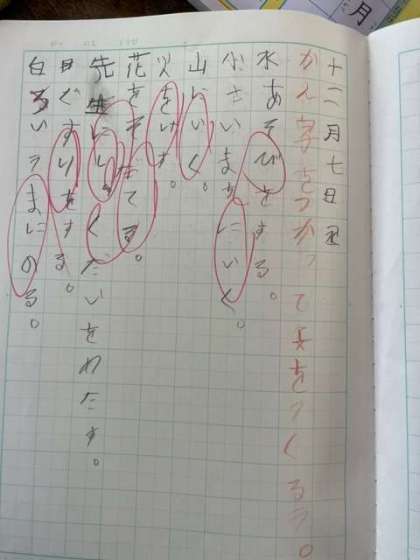 十二月七日 王
かん字をつかって文をつくろう。
水あそびをする。
小さいまちにいく。
山にいく。
火をけす。
花をそだてる。
先生にしゅくだいをわたす。
日ぐすりをする。
白ろいうまにのる。
月